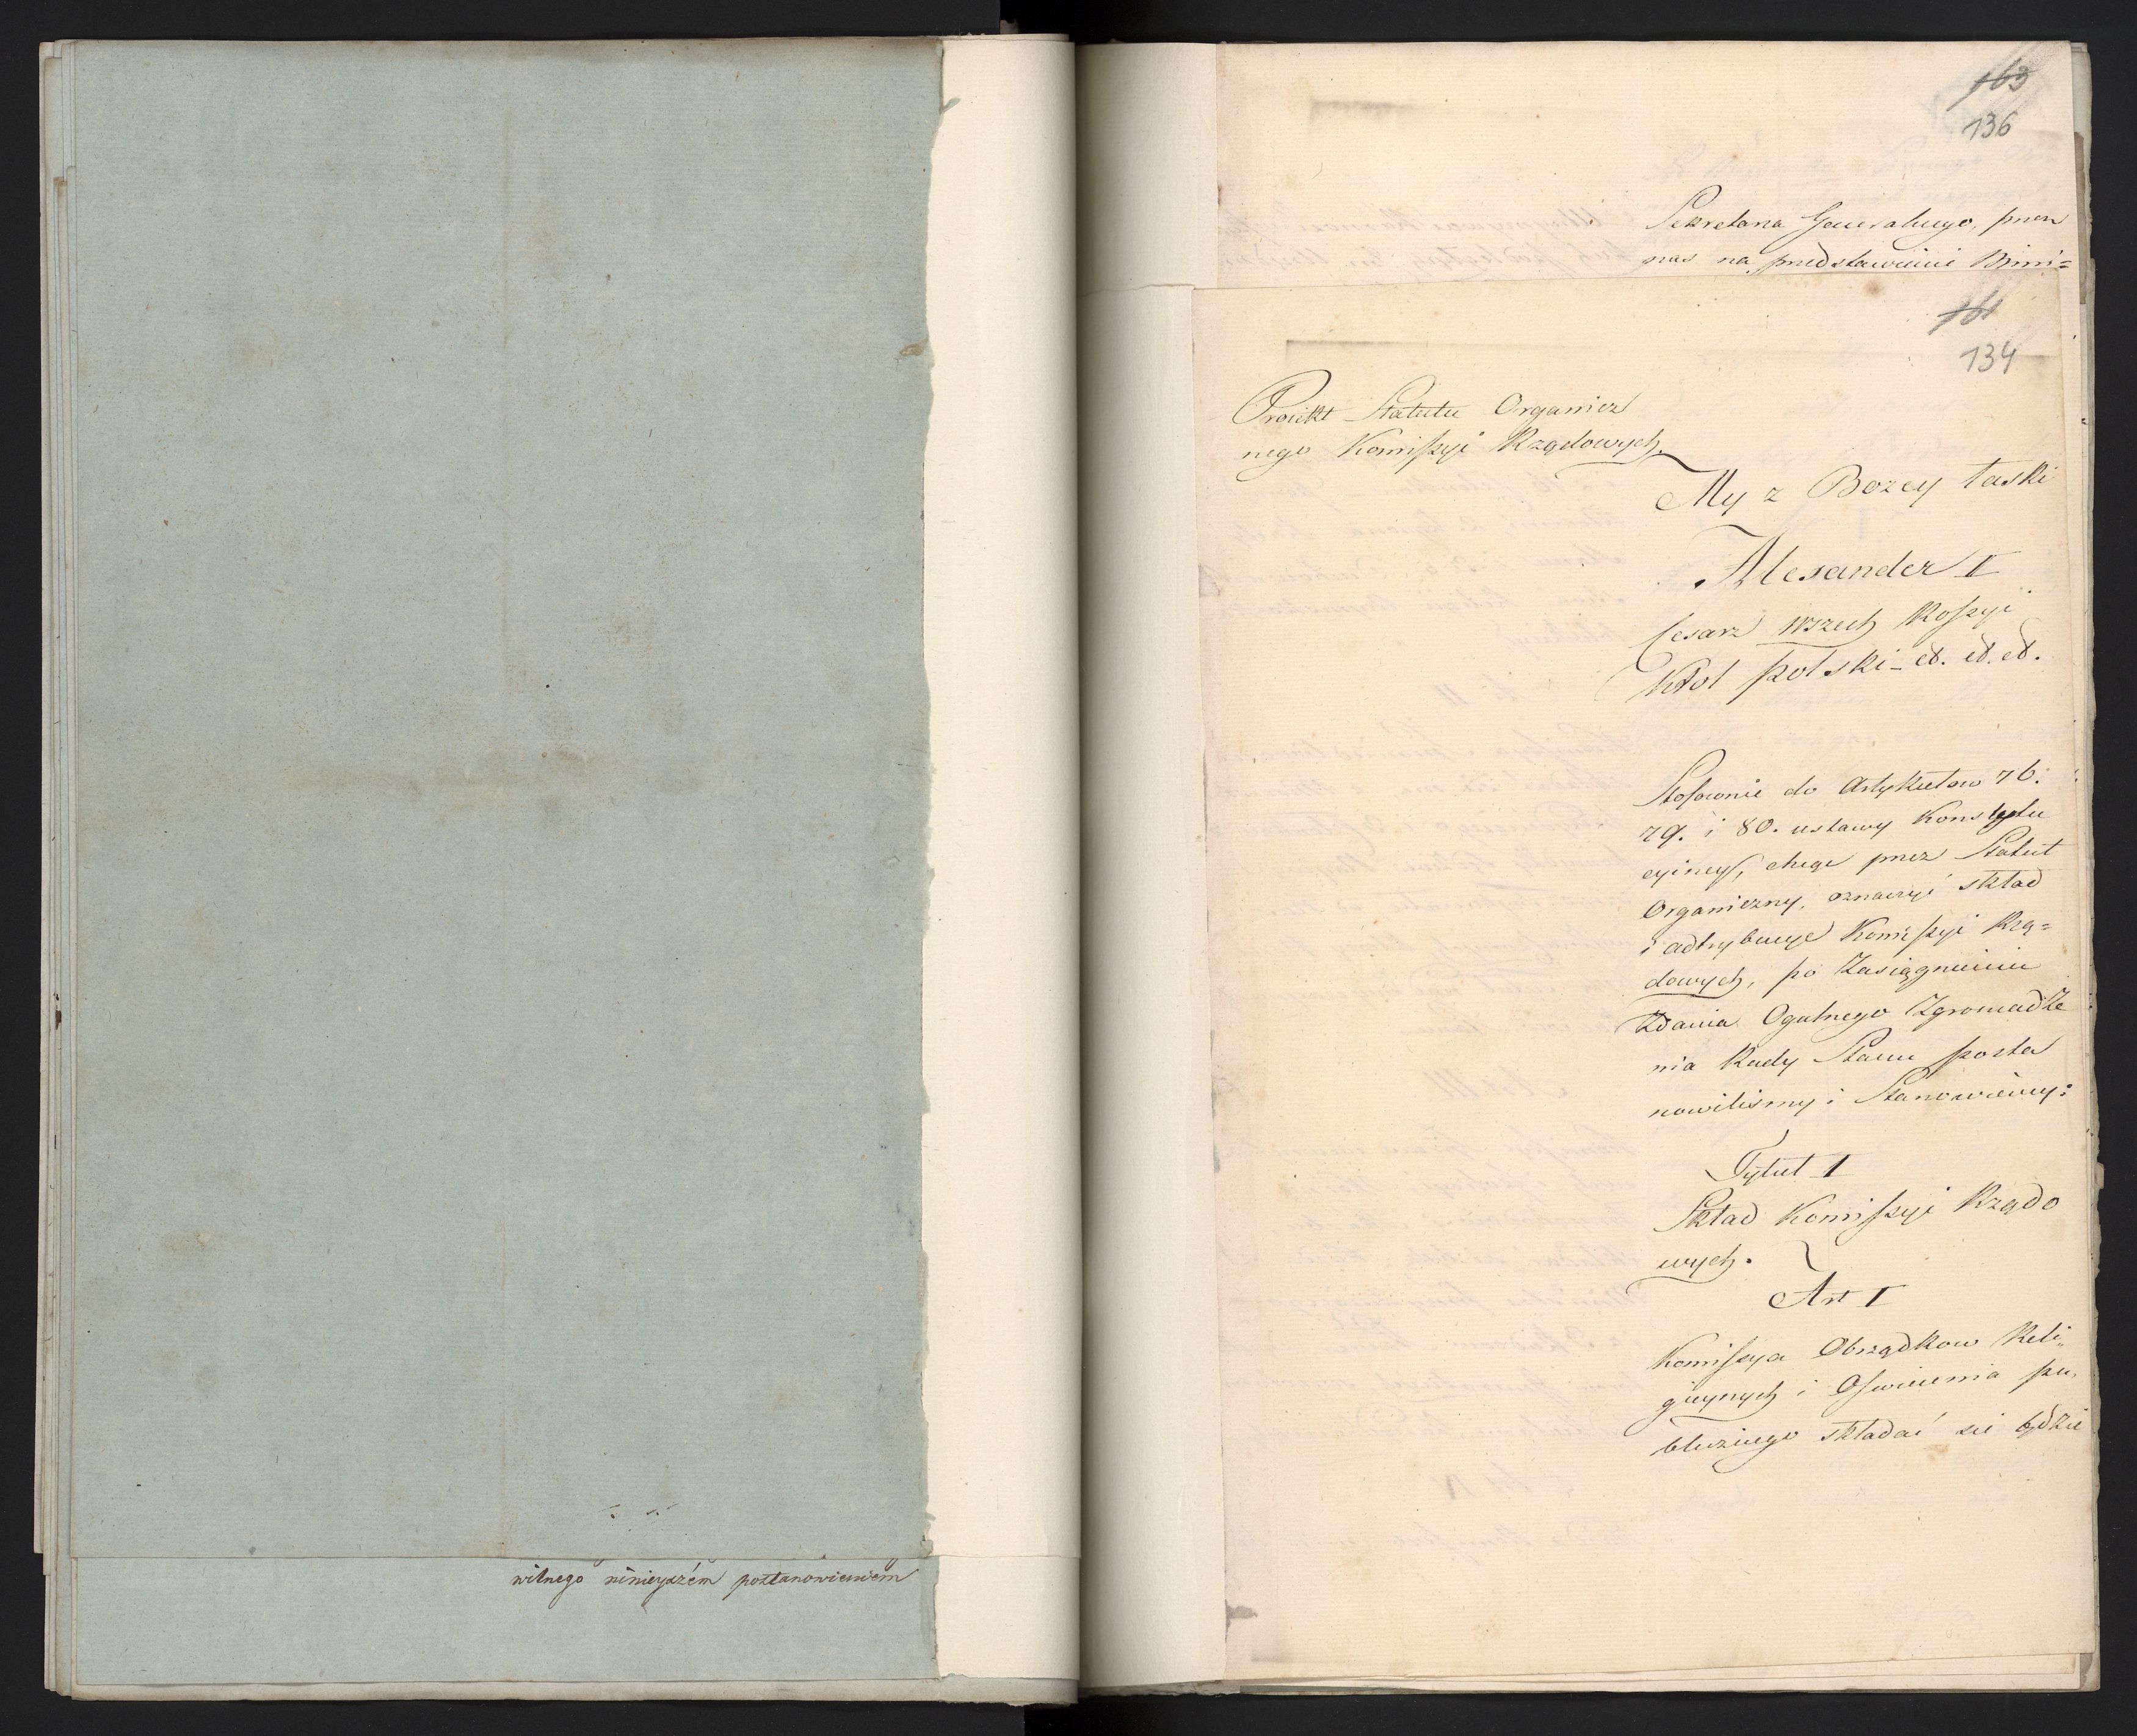 wilnego ninieyszém postanowieniem
163
136
Sekretarza Generalnego, przez
nas na przedstawienie Mini=
161
134
Proiekt Statutu Organicz
nego Komiſsyi Rządowych.
My z Bozey łaski
Alexander I
Cesarz wszech Roſsyi
Krol polski et. et. et.
Stoſownie do Artykułow 76.
79. i 80. ustawy Konstytu
cyiney, chcąc przez Statut
Organiczny, oznaczyć skład
i adtrybucye Komiſsyi Rzą=
dowych, po zasiągnieniu
zdania Ogulnego Zgromadze
nia Rady Stanu posta
nowiliśmy i Stanowiemy:
Tytuł I
Skład Komiſsyi Rządo
wych.
Art I
Komiſsya Obrządkow Reli„
giinych i Oſwiecenia pu„
bliczнego składać sie będzie